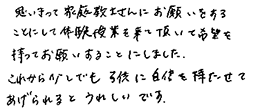 思いきって家庭教士せんにお願いをする
ことにして体験授業を来て頂いて希望を
持ってお願いすることにしました。
これから少しでも子供に自信を持たせて
あげられるとうれしいです。